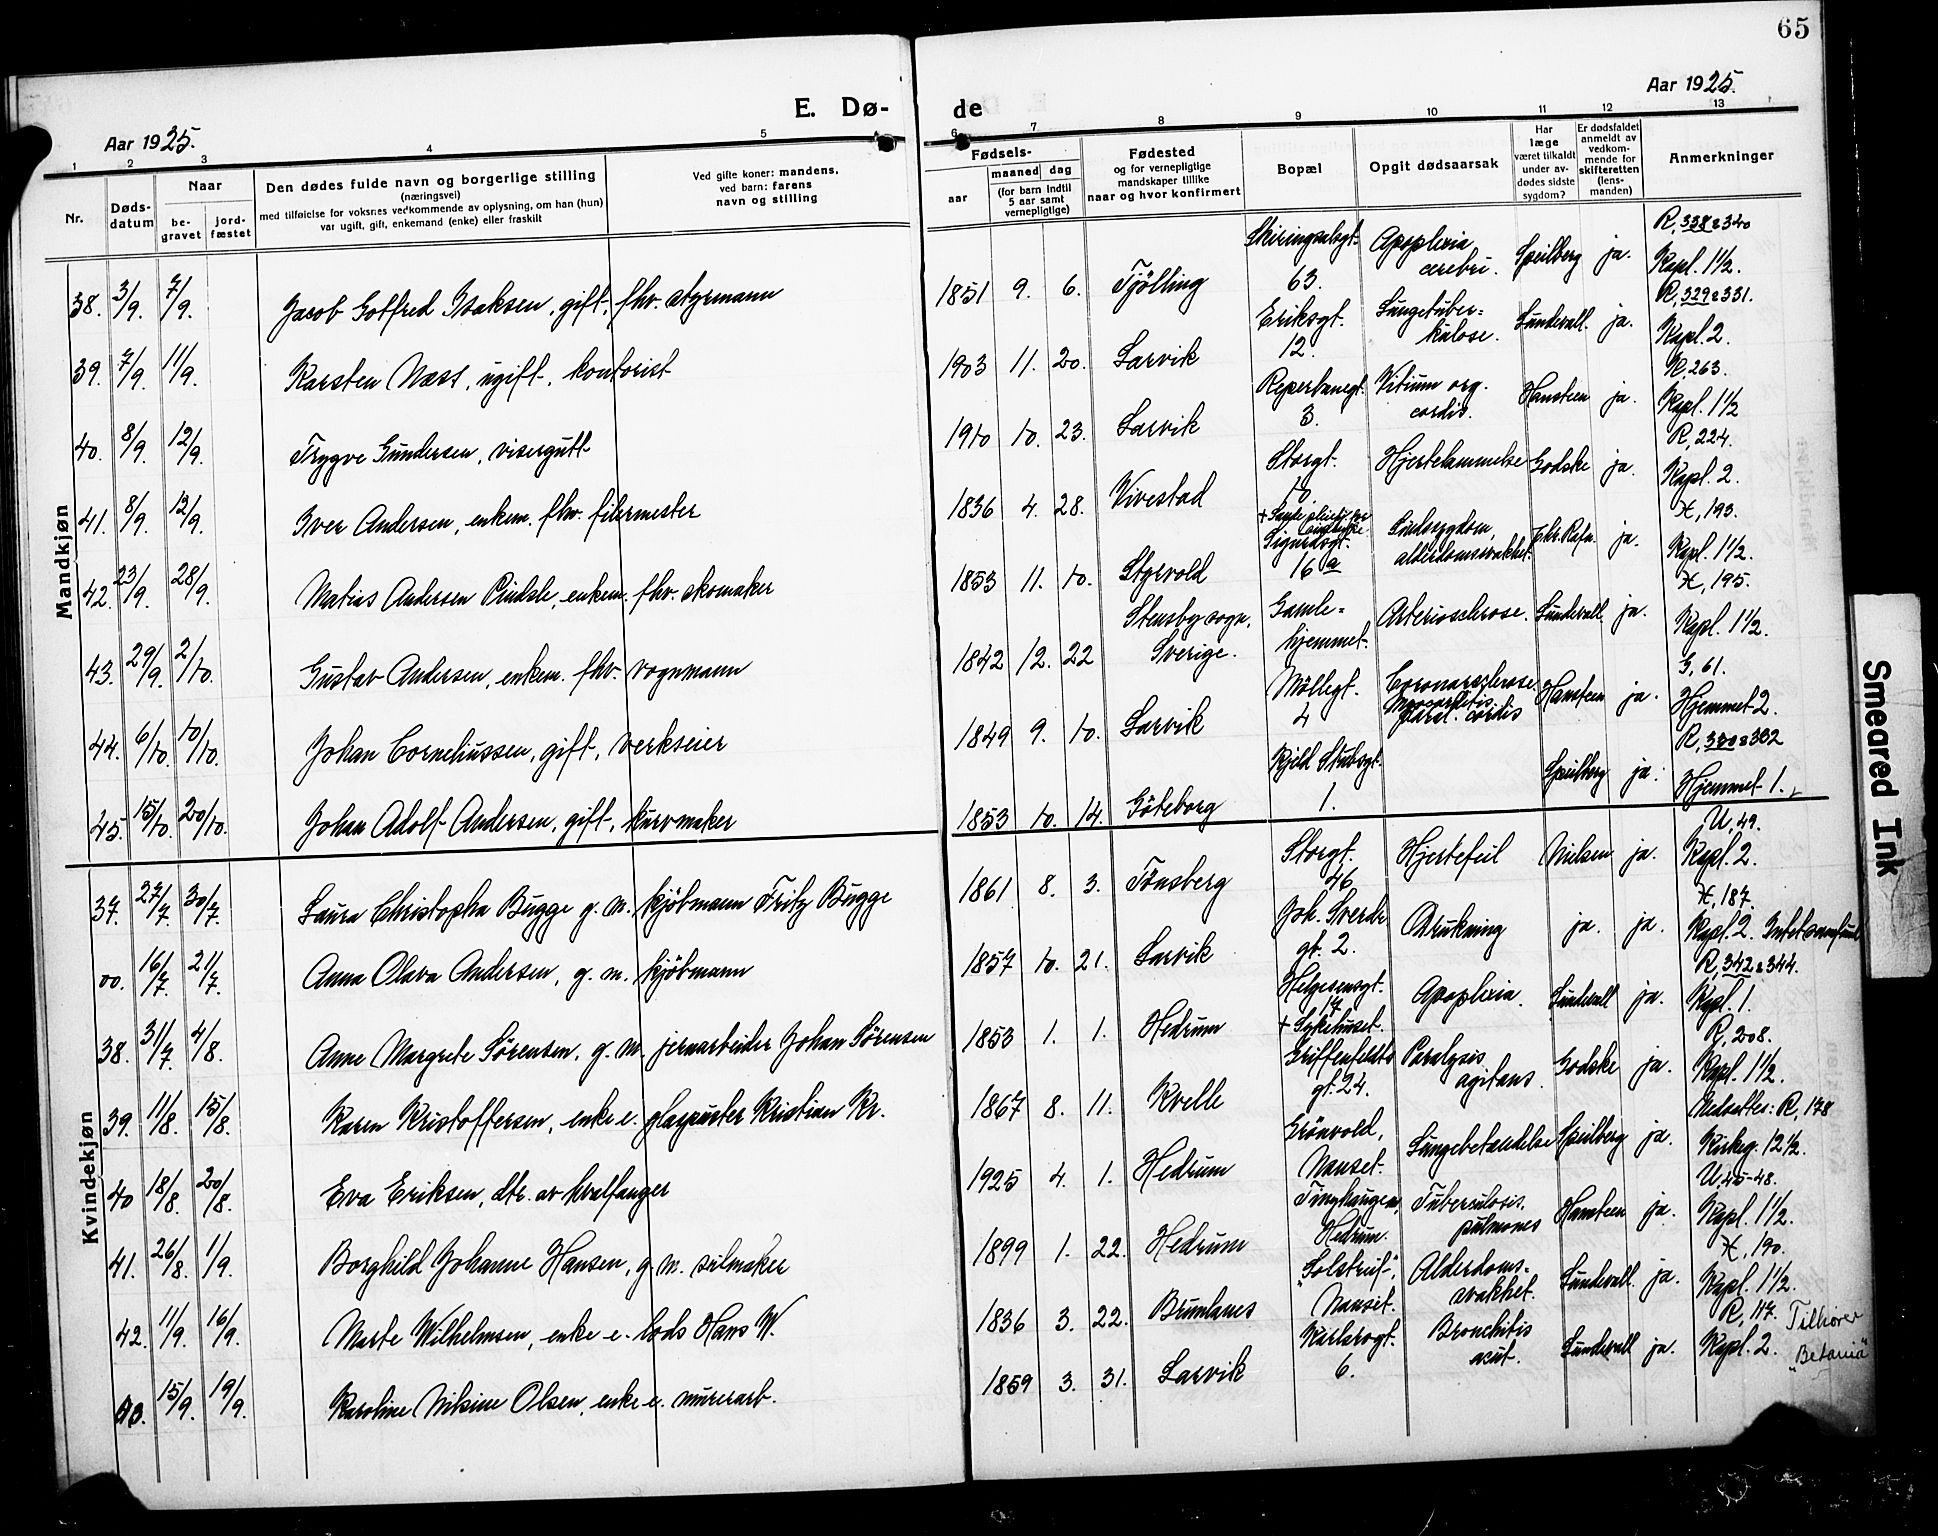 65
Aar 1925.
E. Dø-
de
Aar 1925.
1 2 3 4 5 6 7 8 9 10 11 12 13
Nr.
Døds-
datum
Naar
be-
gravet
jord-
fæstet
Den dødes fulde navn og borgerlige stilling
(næringsvei)
med tilføielse for voksnes vedkommende av oplysning, om han (hun)
var ugift, gift, enkemand (enke) eller fraskilt
Ved gifte koner: mandens,
ved barn: farens
navn og stilling
Fødsels-
aar
maaned
dag
(for barn indtil
5 aar samt
vernepligtige)
Fødested
og for vernepligtige
mandskaper tillike
naar og hvor konfirmert
Bopæl
Opgit dødsaarsak
Har
læge
været tilkaldt
under av-
dødes sidste
sygdom?
Er dødsfaldet
anmeldt av
vedkom-
mende for
skifteretten
(lens-
manden)
Anmerkninger
Mandkjøn
38. 3/9. 7/9. Jacob Gotfred Isaksen, gift, fhv. styrmann 1851 9. 6. Tjölling Skiringsalsgt. 63. Apoplexia cerebri. Speilberg ja. R, 338 & 340 Kapl. 1 1/2.
39. 7/9. 11/9. Karsten Næss, ugift, kontorist 1903 11. 20. Larvik Eriksgt. 12. Lungetuber= kulose. Lundevall. ja. R, 329 & 331. Kapl. 2.
40. 8/9. 12/9. Trygve Gundersen, visergutt 1910 10. 23. Larvik Reperbanegt. 3. Vitium org. cordis. Hansteen ja. R, 263. Kapl. 1 1/2
41. 8/9. 12/9. Iver Andersen, enkem. fhv. filermester 1836 4. 28. Vivestad Storgt. 10. Hjertelammelse Godske ja. R, 224. Kapl. 2.
42. 23/9. 28/9. Matias Andersen Pindsle, enkem. fhv. skomaker 1853 11. 10. Styrvold Sigurdsgt. 16 a alderdomssvakhet. Chr. Rafn. ja. H, 193. Kapl. 1 1/2.
43. 29/9. 2/10. Gustav Andersen, enkem. fhv. vognmann 1842 12. 22 Stensby sogn, Sverige. Gamle= hjemmet. Arteriosclerose. Lundevall. ja. H, 195. Kapl. 1 1/2.
44. 6/10. 10/10. Johan Corneliussen, gift, verkseier 1849 9. 10. Larvik Möllegt. 4 Coronarsclerose. Myocarditis. Paral. cordis Hansteen ja. G, 61. Hjemmet 2.
45. 15/10. 20/10. Johan Adolf Andersen, gift, kurvmaker 1853 10. 14. Göteborg Kjeld Stubsgt. 1. Speilberg ja. R, 330 & 332 Hjemmet 1.
Kvindekjøn
37. 27/7. 30/7. Laura Christopha Bugge g. m. kjöbmann Fritz Bugge 1861 8. 3. Tönsberg Storgt. 46 Hjertefeil Nielsen ja. U, 49. Kapl. 2.
00. 16/7. 21/7. Anna Olava Andersen, g. m. kjöbmann 1857 10. 21. Larvik Joh. Sverdr gt. 2. Drukning ja. ja. H, 187. Kapl. 2.
38. 31/7. 4/8. Anne Margrete Sörensen, g. m. jernarbeider Johan Sörensen 1853 1. 1. Hedrum Helgesensgt. 17 Apoplexia. Lundevall ja. R, 342 & 344. Kapl. 1.
39. 11/8. 15/8. Karen Kristoffersen, enke e. glaspuster Kristian Kr. 1867 8. 11. Kvelle + Sykehuset. Griffenfeldts gt. 24. Paralysis agitans. Godske ja. R, 208. Kapl. 1 1/2.
40 18/8. 20/8. Eva Eriksen, dtr. av hvalfanger 1925 4. 1. Hedrum Grönvold, Nanset. Lungebetændelse Speilberg ja. Nedsattes: R, 178 Kirkeg. 12 1/2.
41. 26/8. 1/9. Borghild Johanne Hansen, g. m. seilmaker 1899 1. 22. Hedrum Tinghaugen, Hedrum. Tuberculosis. pulmones Hansteen ja. U, 45-48. Kapl. 1 1/2.
42. 11/9. 16/9. Marte Wilhelmsen, enke e. lods Hans W. 1836 3. 22. Brunlanes "Solstrif", Nanset. Alderdoms- svakhet. Lundevall. ja. H, 190. Kapl. 1 1/2.
43. 15/9. 19/9. Karoline Nilsine Olsen, enke e. murerarb. 1859 3. 31. Larvik Karlsrogt. 6. Bronchitis acut. Lundevall ja. R, 117. Kapl. 2. Tilhører "Betania"
Smeared Ink